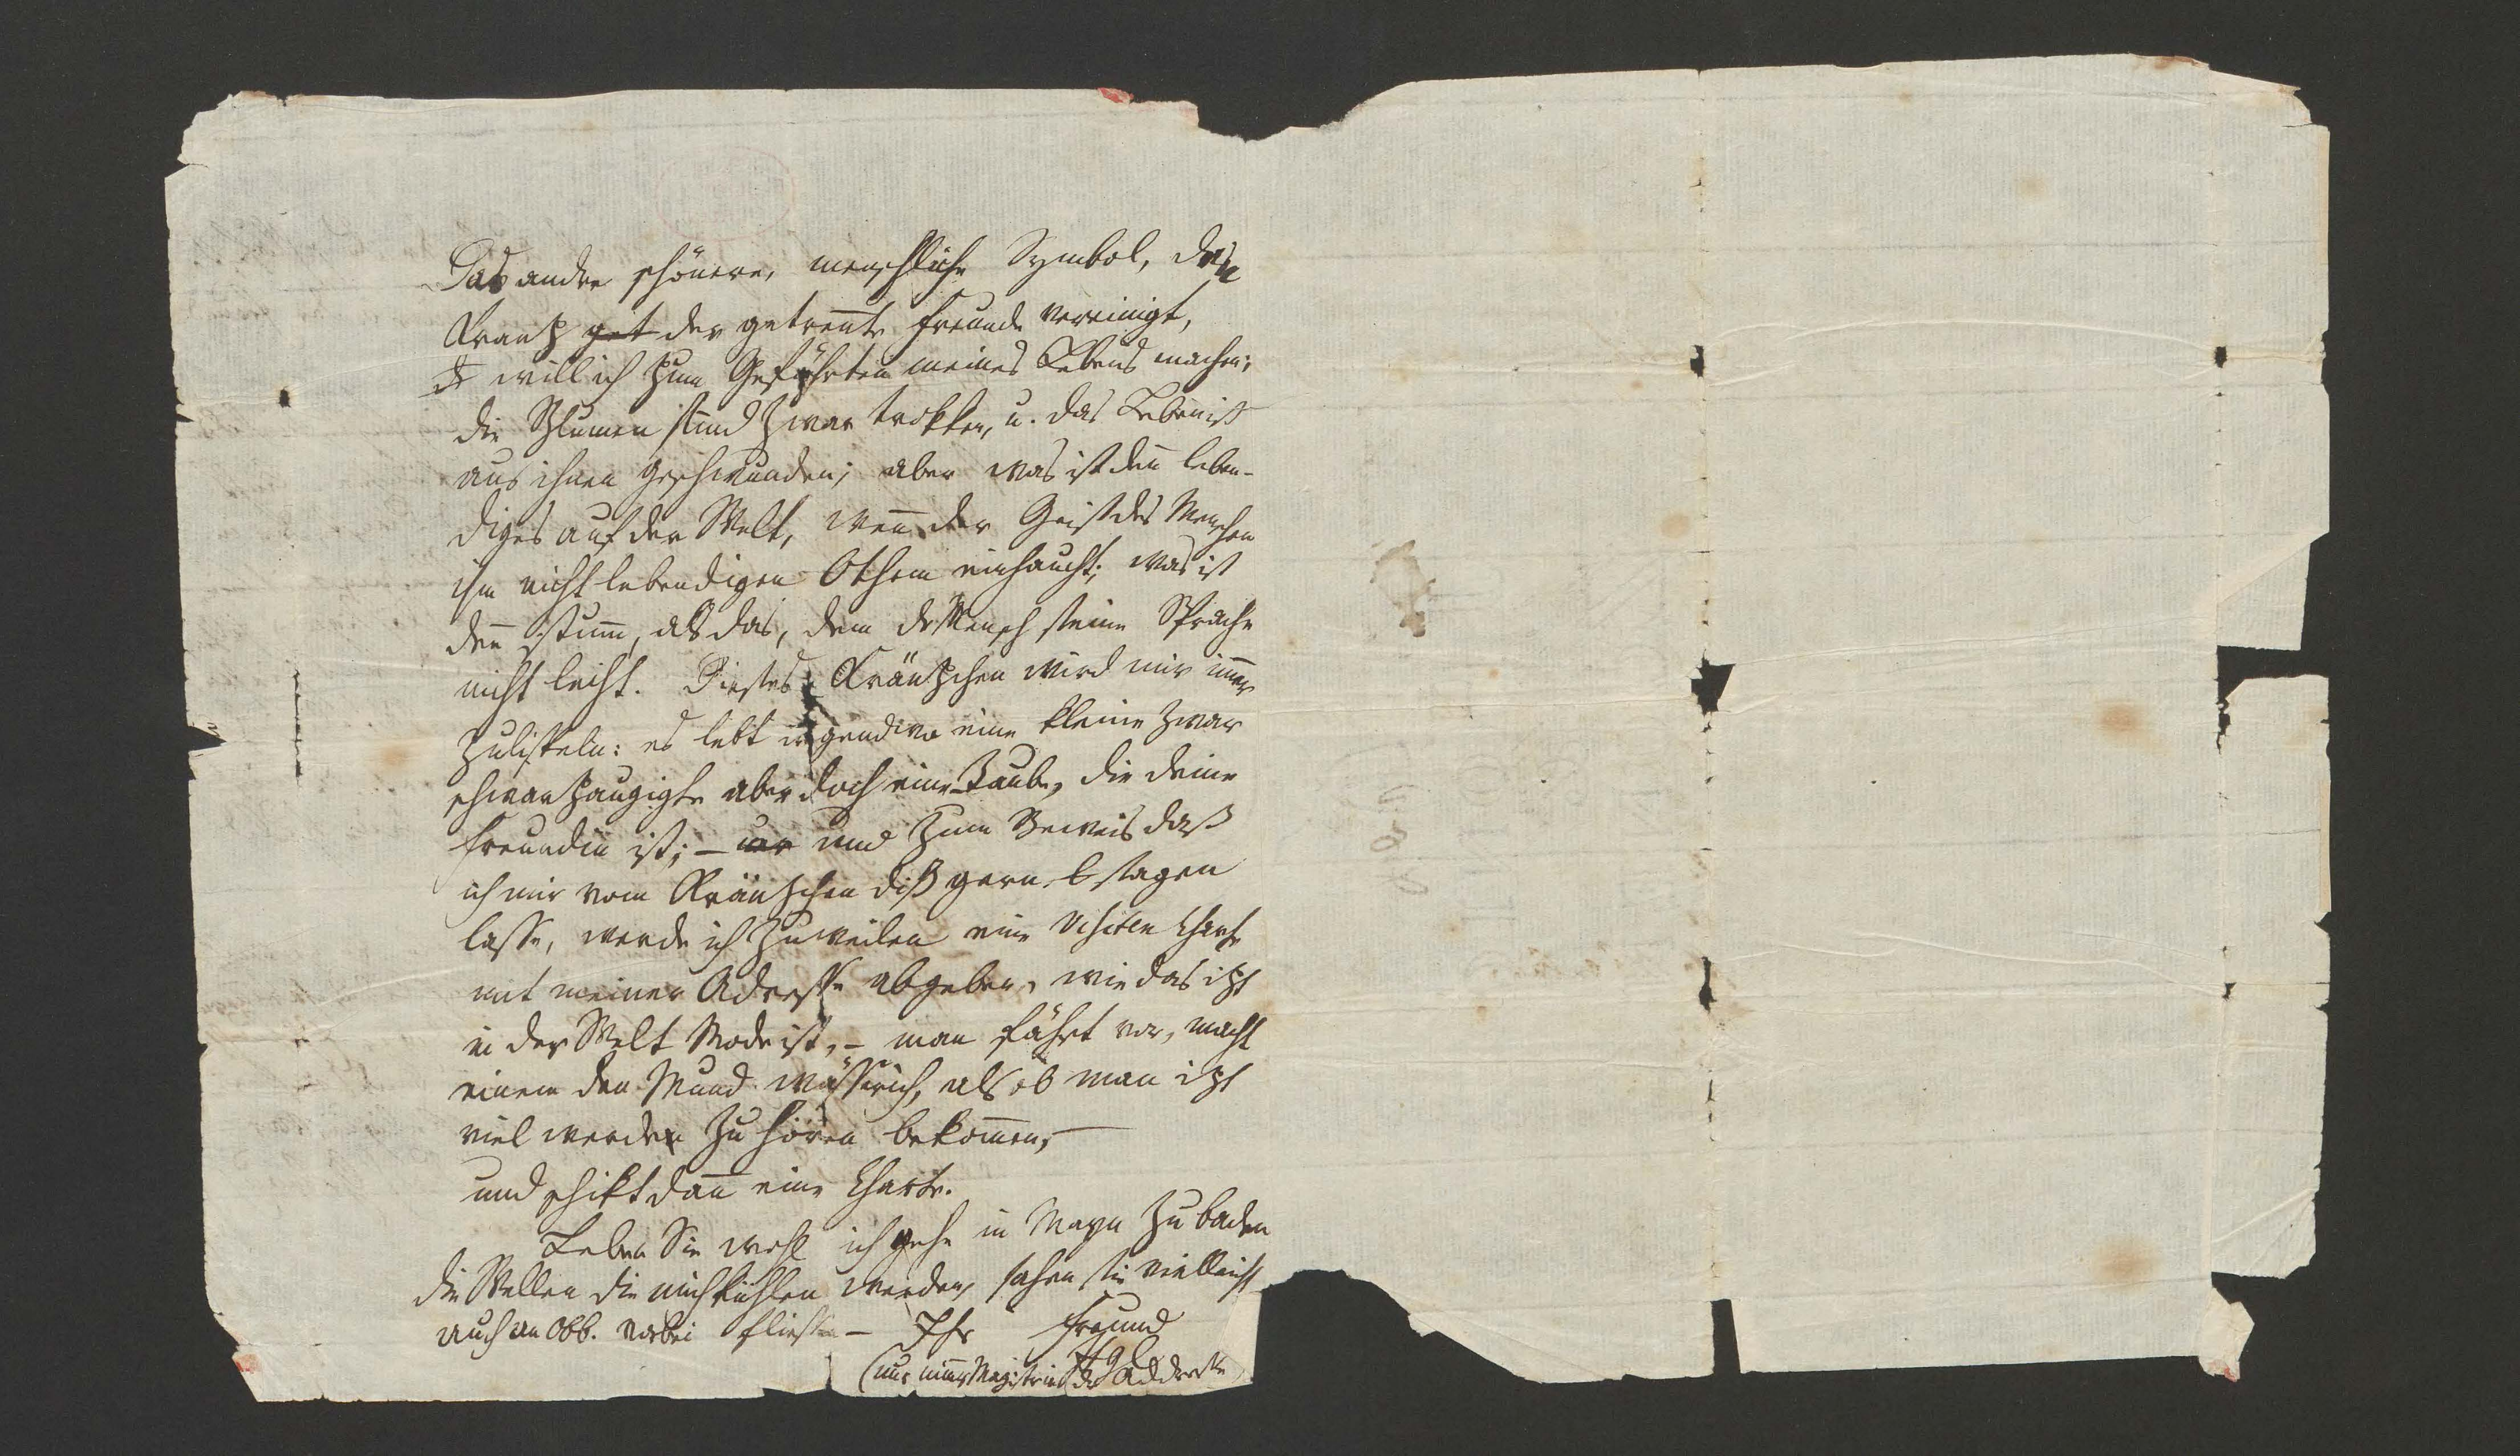 Das andre schönere, menschliche Symbol, den
Krantz get der getrennte Freunde vereinigt,
will ich zum Gefährten meines Lebens machen;
die Blumen sind zwar trokken, u. das Leben ist
aus ihnen geschwunden; aber was ist den̄ leben-
diges auf der Welt, wen̄ der Geist des Menschen
ihm nicht lebendigen Othem einhaucht; was ist
den̄ stum̄, als das, dem der Mensch seine Sprache
nicht leiht. Dieses Kräntzchen wird mir im̄er
zulispeln: es lebt irgendwo eine kleine zwar
schwartzaugigte aber doch eine Taube, die deine
Freundin ist; – und zum Beweis daß
ich mir vom Kräntzchen diß gern sagen
lasse, werde ich zuweilen eine Visiten Charte
mit meiner Adresse abgeben, wie das itzt
in der Welt Mode ist, – man fährt vor, macht
einem den Mund wässrich, als ob man itzt
viel werde zu hören bekom̄en, –
und schikt dan̄ eine Charte.
Leben Sie wohl ich gehe in Mayn zu baden
die Wellen die mich kühlen werden, sahen sie vielleicht
auch an Obb. vorbei fliessen – Ihr Freund